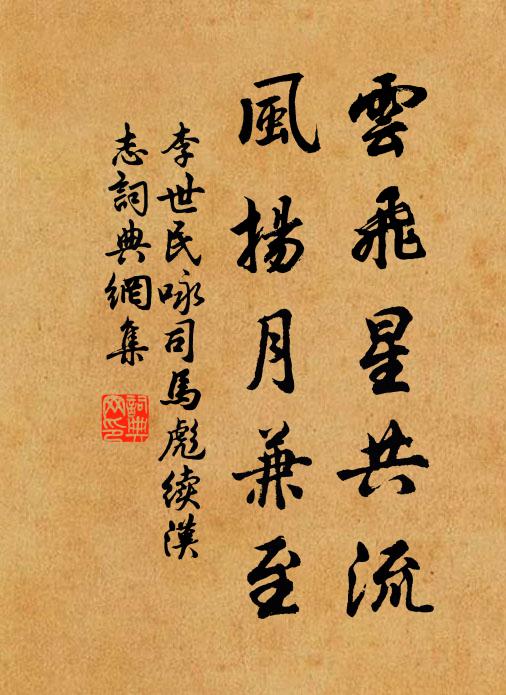 雲飛星共流
風揚月兼至
李世民咏司馬彪續漢
志詞典網集
詞典
网印